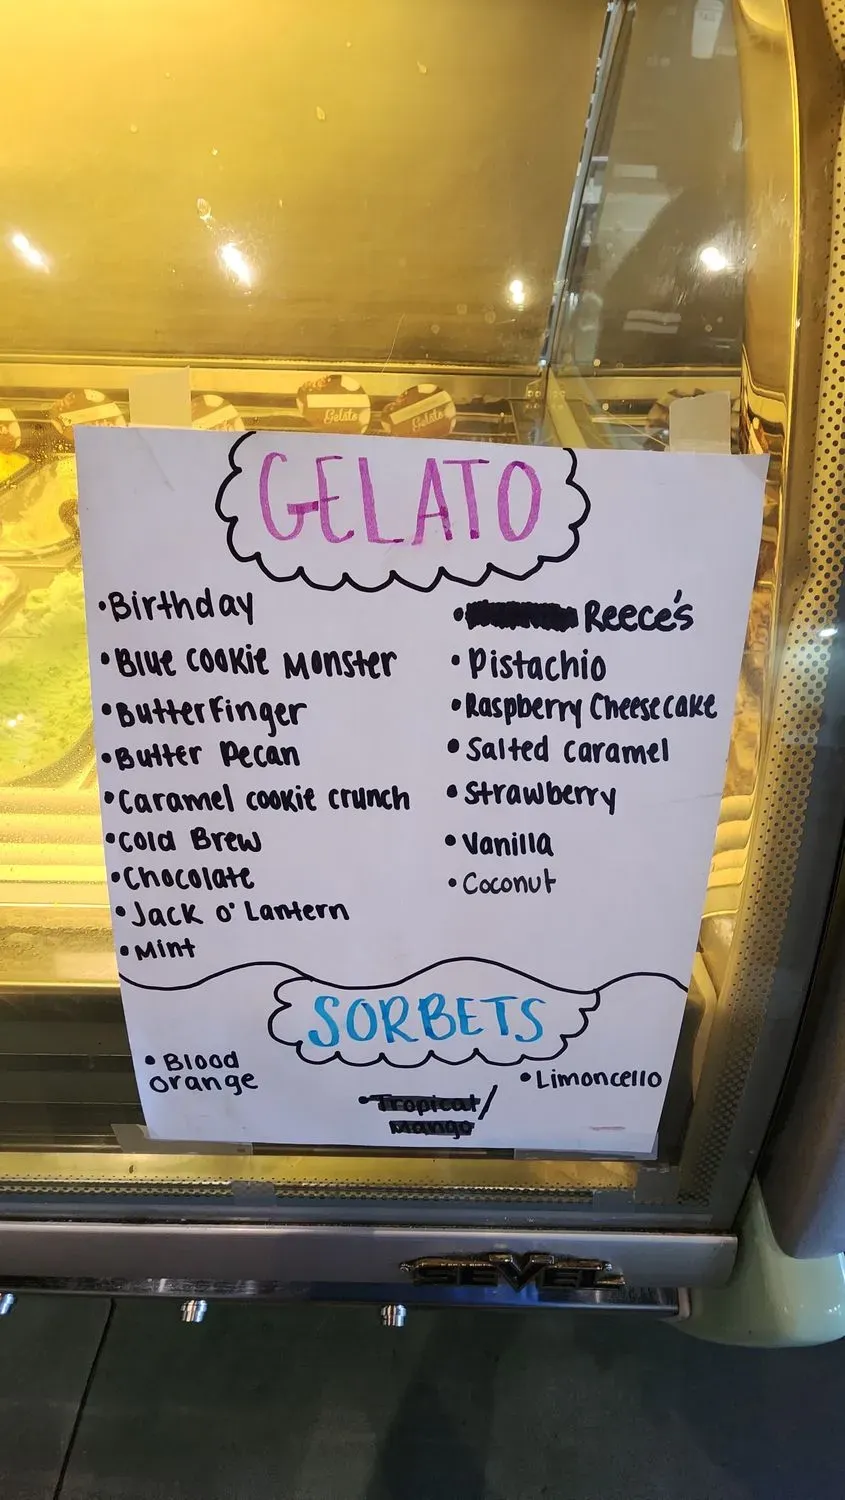 Gelato
Gelato
GELATO
•Birthday
•Blue cookie Monster
•Butterfinger
•Butter Pecan
•Caramel cookie crunch
•Cold Brew
•Chocolate
•Jack o' Lantern
•Mint
• Reece's
•Pistachio
•Raspberry Cheesecake
•Salted caramel
•Strawberry
•Vanilla
•Coconut
SORBETS
•Blood
orange
•Tropical/
Mango
•Limoncello
SEVEL